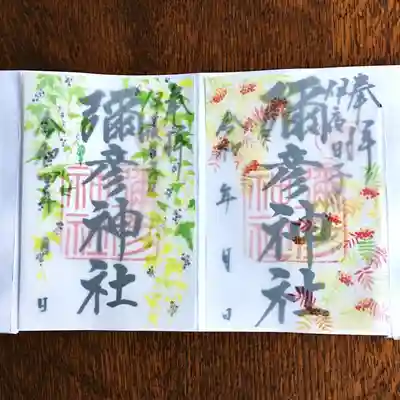 奉拝
伊夜日子
彌彦神社
令和 年 月 日
奉拝
彌彦神社
令和 年 月 日